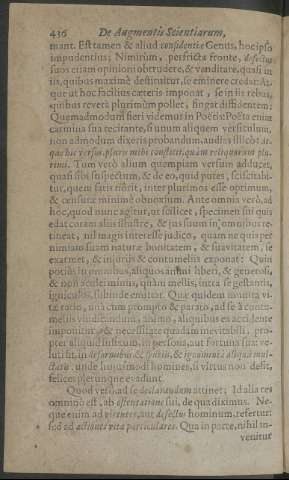 436 De Augmentis Scientiarum,
mant. Est tamen & aliud confidentiæ Genus, hoc ipso
impudentius; Nimirùm, perfrictâ fronte, defectus
suos etiam opinioni obtrudere, & vanditare, quasi in
iis, quibus maximè destituitur, se eminere credat: At-
que ut hoc facilius cæteris imponat, se in iis rebus,
quibus reverà plurimùm pollet, fingat diffidentem:
Quemadmodum fieri videmus in Poëtis: Poëta enim
carmina sua recitante, si unum aliquem versiculum,
non admodum dixeris probandum, audias illicò; At-
qui hic versus pluris mihi constitit, quàm reliquorum plu-
rimi. Tum verò alium quempiam versum adducet,
quasi sibi suspectum, & de eo, quid putes, sciscitabi-
tur, quem satis nôrit, inter plurimos esse optimum,
& censuræ minimè obnoxium. Ante omnia verò, ad
hoc, quod nunc agitur, ut scilicet, specimen sui quis
edat coram aliis illustre, & jus suum in omnibus re-
tineat, nil magis interesse judico, quàm ne quis per
nimiam suam naturæ bonitatem, & suavitatem, se
exarmet, & injuriis & contumeliis exponat: Quin
potiùs in omnibus, aliquos animi liberi, & generosi,
& non aculei minus, quàm mellis, intra se gestantis,
igniculos, subinde emittat. Quæ quidem munita vi-
tæ ratio, unà cum prompto & parato, ad se à contu-
meliis vindicandum, animo, aliquibus ex accidente
imponitur, & necessitate quadam inevitabili, pro-
pter aliquid infixum, in persona, aut fortuna sua: ve-
luti fit, in deformibus & spuriis, & ignominiâ aliquâ mul-
ctatis. unde hujusmodi homines, si virtus non desit,
felices plerunque evadunt.
Quod verò ad se declarandum attinet; Id alia res
omninò est, ab ostentatione sui, de qua diximus. Ne-
que enim ad virtutes, aut defectus hominum, refertur:
sed ad actiones vitæ particulares. Qua in parte, nihil in-
venitur